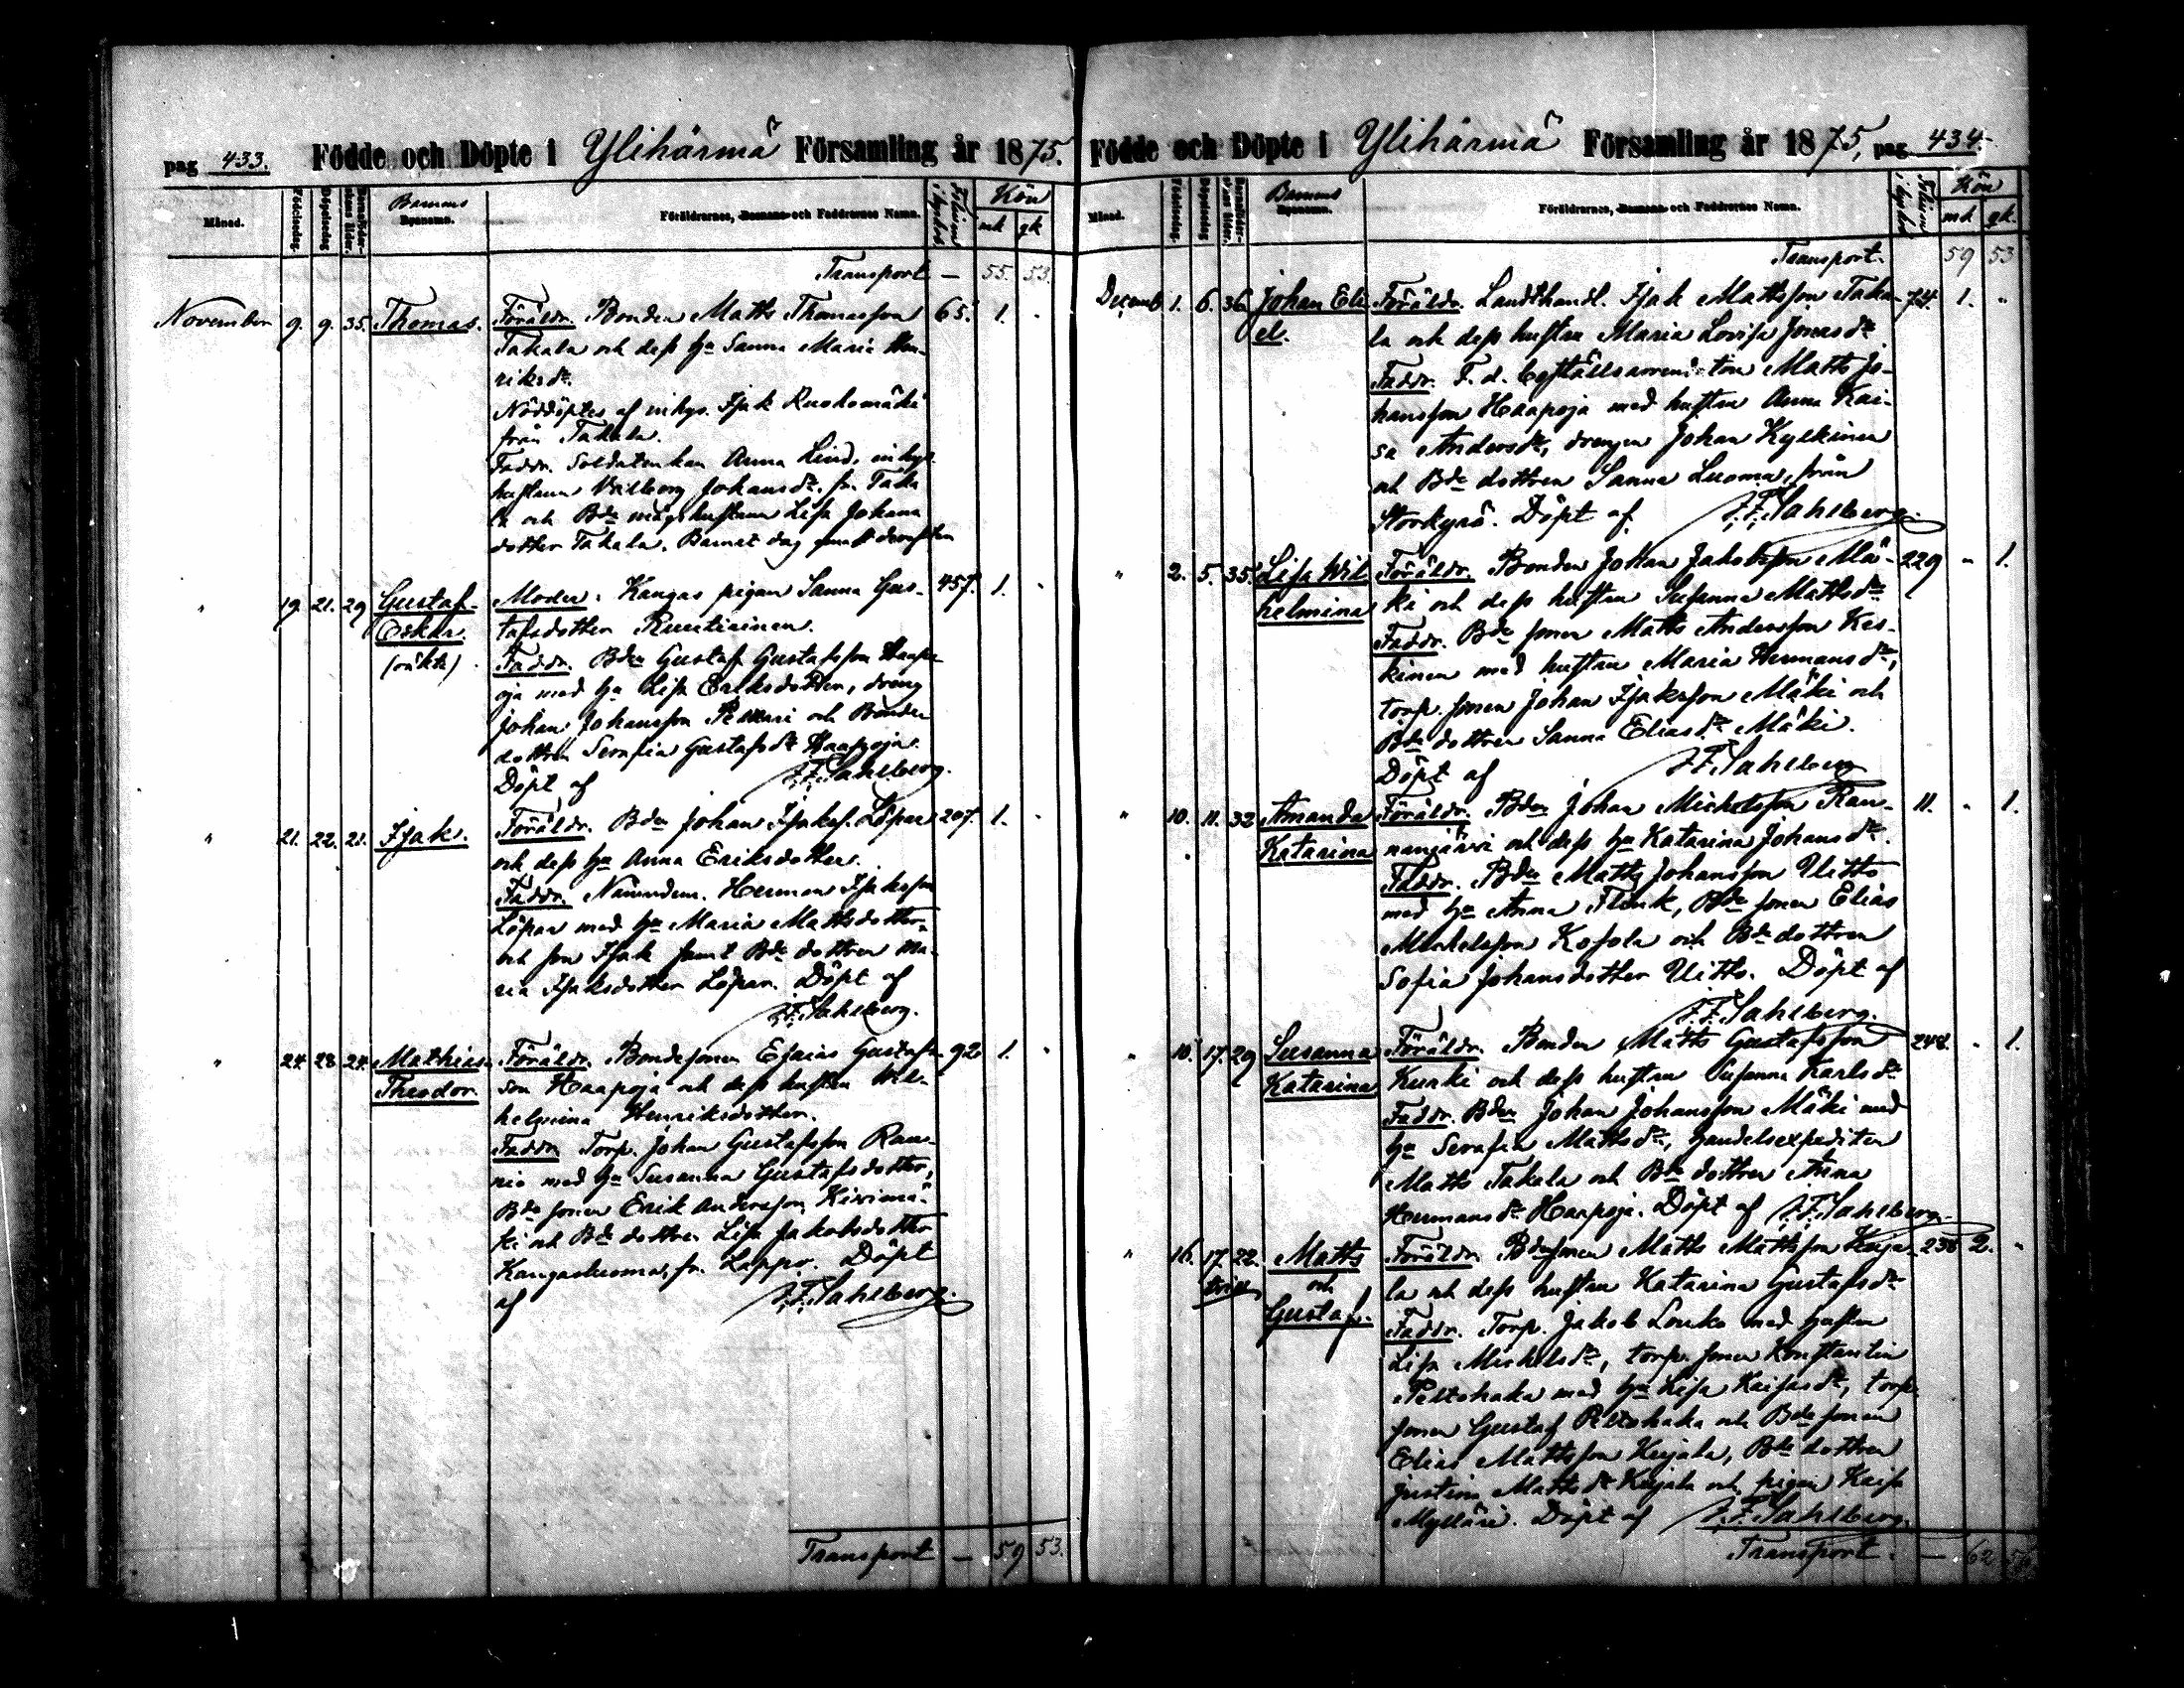 pag 433. Födde och Döpte i Ylihärmä Församling år 1875.
Månad. Födelsedag. Döpelsedag Barnaföderskans ålder. Barnens Dopnamn. Föräldrarnes, Barnens och Faddrarnes Namn. Kön
mk qk
Transport — 55. 53
November 9. 9. 35. Thomas. Föräldr. Bonden Matts Thomasson 65. 1.
Takala och dess hu Sanna Maria Hen-
riksdr.
Nöddöptes af inhys. Isak Ruokomäki
från Takala.
Faddr. Soldatenkan Anna Lind, inhys.
hustrun Valborg Johansdr. fr. Taka
la och Bde mågshustrun Lisa Johans
dotter Takala. Barnet dog
" 19. 21. 29 Gustaf Oskar. (oäkta) Moder: Kangas pigan Sanna Gus- 457. 1.
tafsdotter Runtiainen.
Faddr. Bden Gustaf Gustafsson Haapo
oja med hu Lisa Eriksdotter, dreng
Johan Johansson Pesson och Bonde
dottren Serafia Gustafsdr Haapoja.
Döpt af J.F. Sahlberg.
" 21. 22. 21. Isak. Föräldr. Bden Johan Isaks. Löpar 207. 1.
och dess hu Anna Eriksdotter.
Faddr. Nämndem. Herman Isaksson
Löpar med hu Maria Mattsdotter
och son Isak samt Bde dottren Ma-
ria Isaksdotter Löpar. Döpt af
J.F. Sahlberg.
" 24. 28. 24. Mathias Theodor. Föräldr. Bondesonen Esaias Gustafs- 92 1.
son Haapoja och dess hustru Wil-
helmina Henriksdotter.
Faddr. Torp. Johan Gustafsson Ran-
nio med hu Susanna Gustafsdotter,
Bde sonen Erik Andersson Kivimä-
ki och Bde dottren Lisa Jakobsdotter
Kangasluoma, fr. Lappo. Döpt
af J.F. Sahlberg.
Transport — 59 53.
Födde och Döpte i Ylihärmä Församling år 1875, pag 434.
Månad. Födelsedag. Döpelsedag Barnens Dopnamn. Föräldrarnes, Barnens och Faddrarnes Namn. Kön
mk. qk.
Transport. 59 53
Decemb 1. 6. 36 Johan Eli el. Föräldr. Landthandl. Isak Mattsson Taka- 74. 1. "
la och dess hustru Maria Lovisa Jonasdr.
Faddr. F. d. Boställsarrendatorn Matts Jo-
hansson Haapoja med hustru Anna Kai-
sa Andersdr, drengen Johan Kylkinen
och Bde dottren Sanna Luoma, från
Storkyrö. Döpt af J.F. Sahlberg.
" 2. 5. 35. Lisa Wil helmina Föräldr. Bonden Johan Jakobsson Mä- 229 " 1.
ki och dess hustru Susanna Mattsdr
Faddr. Bde sonen Matts Andersson Kes-
kinen med hustru Maria Hermansdr,
torp. sonen Johan Isaksson Mäki och
Bde dottren Sanna Eliasdr Mäki.
Döpt af J.F. Sahlberg
" 10. 11. 32 Amanda Katarina Föräldr. Bden Johan Michelsson Ran- 11. " 1.
nanjärvi och dess hu Katarina Johansdr.
Faddr. Bden Matts Johansson Uitto
med hu Anna Flink, Bde sonen Elias
Michelsson Kosola och Bde dottren
Sofia Johansdotter Uitto. Döpt af
J.F. Sahlberg.
" 16. 17. 29 Susanna Katarina Föräldr. Bonden Matts Gustafsson 248. " 1.
Kurki och dess hustru Susanna Karlsdr
Faddr. Bden Johan Johansson Mäki med
hu Serafia Mattsdr, Handelsexpediten
Matts Takala och Bde dottren Anna
Hermansdr Haapoja. Döpt af J.F. Sahlberg.
" 16. 17. 22. Matts och Gustaf. Föräldr. Bdesonen Matts Mattsson Kuja- 238 2. "
la och dess hustru Katarina Gustafsdr
Faddr. Torp. Jakob Louko med hustru
Lisa Michelsdr, torp. sonen Konstantin
Peltohaka med hu Lisa Kaisasdr, torp.
sonen Gustaf Peltohaka och Bde sonen
Elias Mattsson Kujala, Bde dottren
Justina Mattsdr Kujala och pigan Kaisa
Mylläri. Döpt af J.F. Sahlberg.
Transport. — 62 56